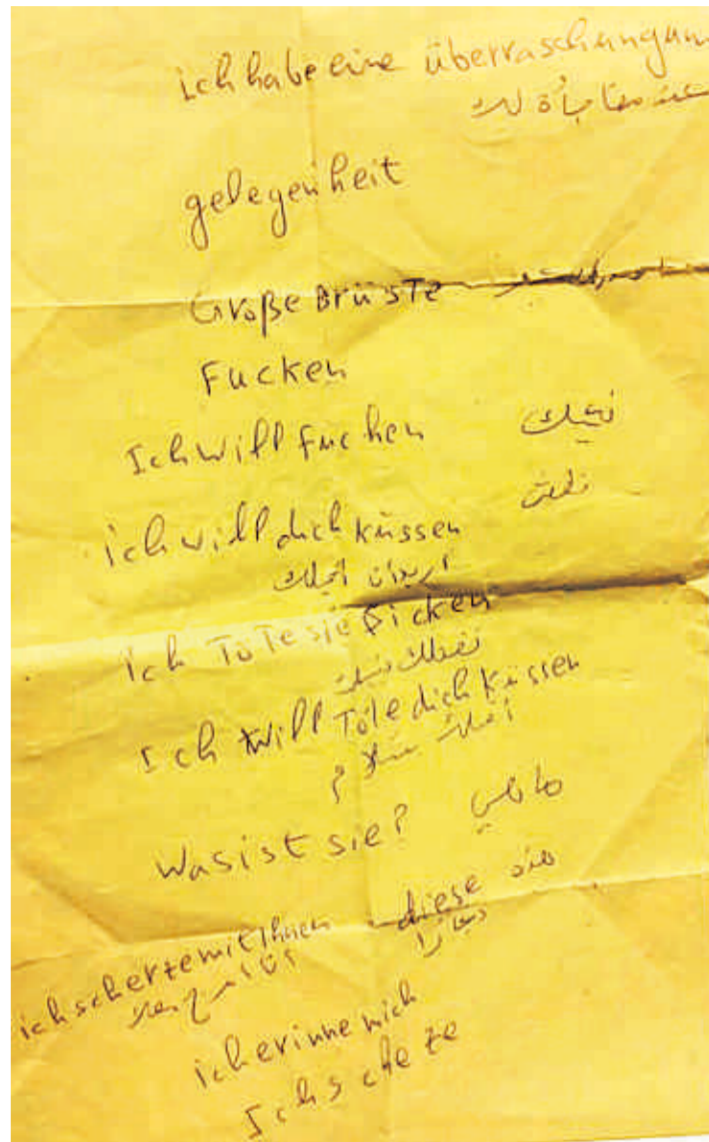 ich habe eine überraschungum
مفاجأة لك
gelegenheit
Große Brüste
Fucken
Ich will fucken
ich will dich küssen
اريد ان اقبلك
ich Töte sie ficken
Ich will Töte dich küssen
Was ist sie? ما هي
diese هذه
ich scherze mit Ihnen
انا امزح معك
ich erinne mich
Ich scheteze